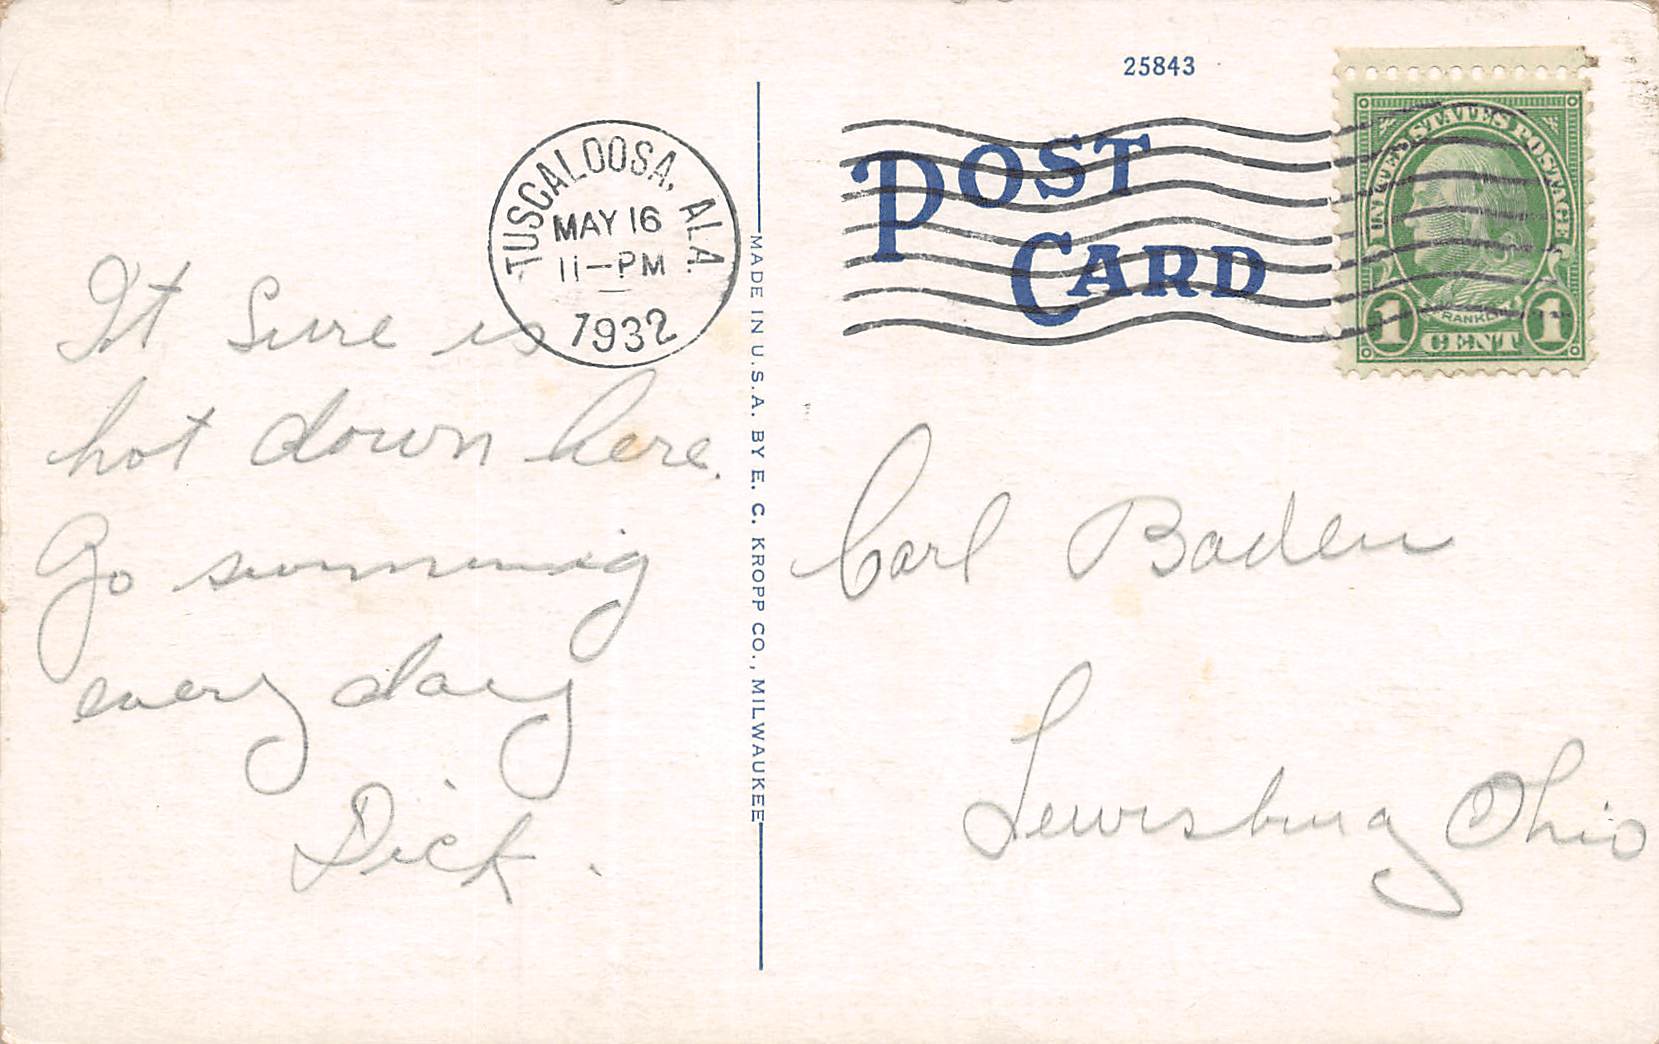 25843
POST
CARD
UNITED STATES POSTAGE
FRANKLIN
1 CENT 1
TUSCALOOSA, ALA.
MAY 16
11-PM
1932
It sure is
hot down here.
Go swimming
every day
Dick.
MADE IN U.S.A. BY E. C. KROPP CO., MILWAUKEE
Carl Baden
Lewisburg Ohio